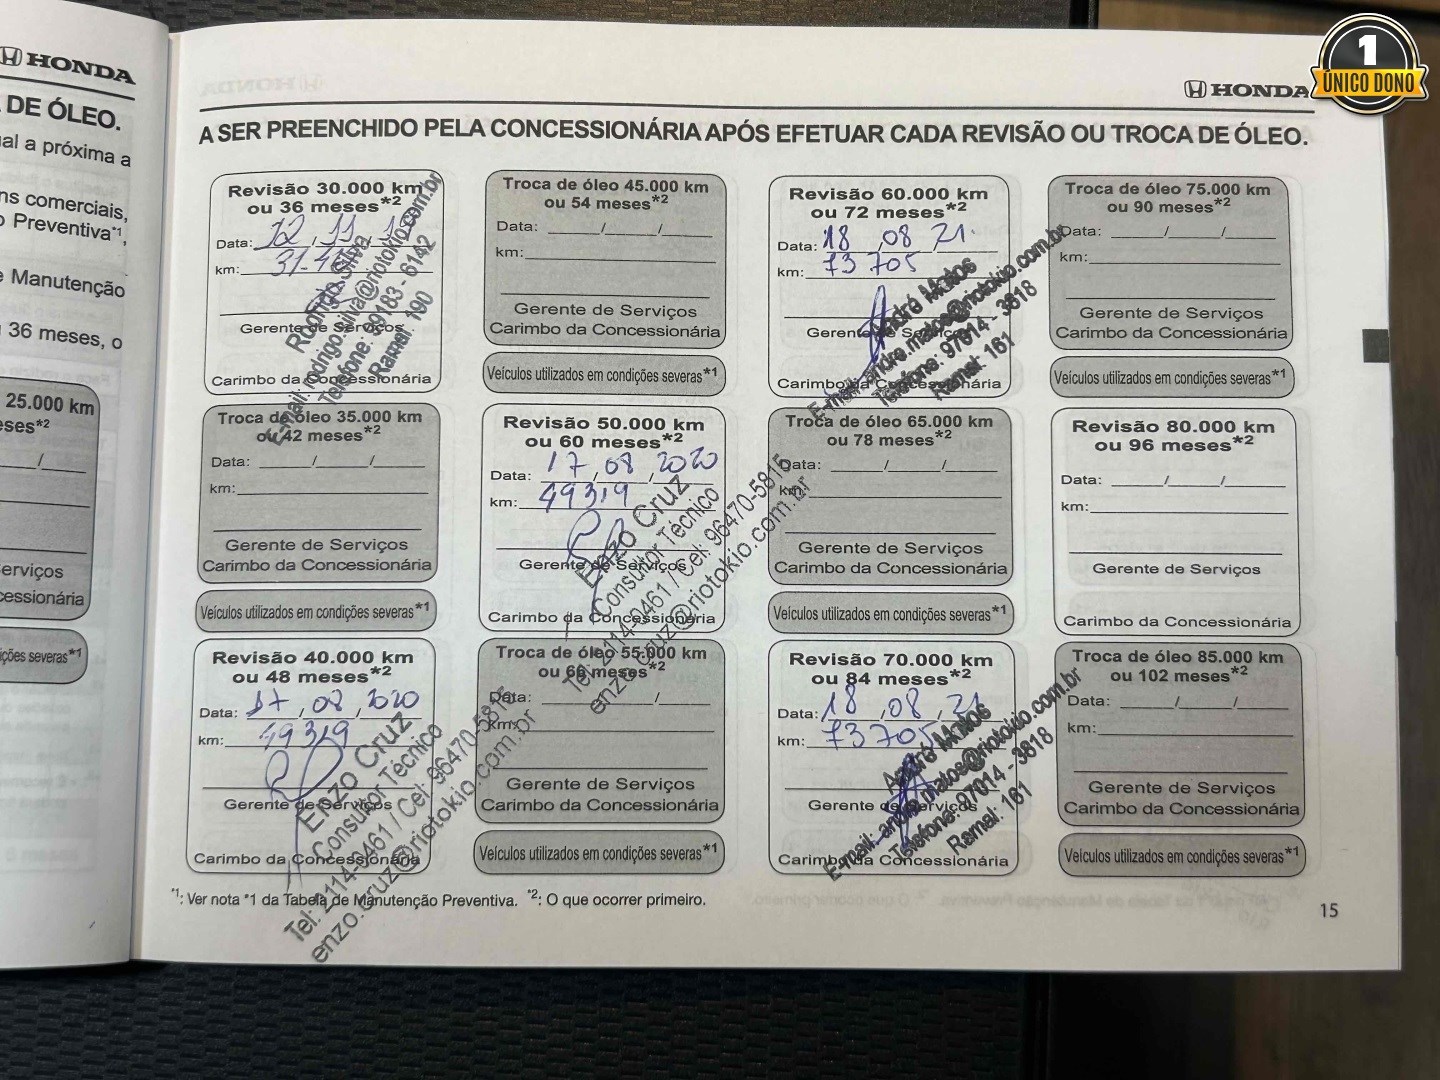 HONDA
DE ÓLEO.
al a próxima a
ns comerciais,
Preventiva*1,
Manutenção
36 meses, o
25.000 km
ses*2
/
erviços
cessionária
ções severas*1
HONDA
1
ÚNICO DONO
A SER PREENCHIDO PELA CONCESSIONÁRIA APÓS EFETUAR CADA REVISÃO OU TROCA DE ÓLEO.
Revisão 30.000 km
ou 36 meses*2
Data: 12, 11,
km: 31.
Gerente de Serviços
Carimbo da Concessionária
Rodrigo Silva
E-mail: rodrigo.silva@riotokio.com.br
Telefone: 99183 - 6142
Ramal: 190
Troca de óleo 45.000 km
ou 54 meses*2
Data: ______/______/______
km:
Gerente de Serviços
Carimbo da Concessionária
Veículos utilizados em condições severas*1
Revisão 60.000 km
ou 72 meses*2
Data: 18, 08 21.
km: 73 705
Gerente de Serviços
Carimbo da Concessionária
André Matos
E-mail: andre.matos@riotokio.com.br
Telefone: 97014 - 3818
Ramal: 161
Troca de óleo 75.000 km
ou 90 meses*2
Data: ______/______/______
km:
Gerente de Serviços
Carimbo da Concessionária
Veículos utilizados em condições severas*1
Troca de óleo 35.000 km
ou 42 meses*2
Data: ______/______/______
km:
Gerente de Serviços
Carimbo da Concessionária
Veículos utilizados em condições severas*1
Revisão 50.000 km
ou 60 meses*2
Data: 17, 08, 2020
km: 49319
Gerente de Serviços
Carimbo da Concessionária
Enzo Cruz
Consultor Técnico
Tel: 2114-0461 / Cel: 96470-5815
enzo.cruz@riotokio.com.br
Troca de óleo 65.000 km
ou 78 meses*2
Data: ______/______/______
km:
Gerente de Serviços
Carimbo da Concessionária
Veículos utilizados em condições severas*1
Revisão 80.000 km
ou 96 meses*2
Data: ______/______/______
km:
Gerente de Serviços
Carimbo da Concessionária
Revisão 40.000 km
ou 48 meses*2
Data: 17, 08, 2020
km: 49319
Gerente de Serviços
Carimbo da Concessionária
Enzo Cruz
Consultor Técnico
Tel: 2114-0461 / Cel: 96470-5815
enzo.cruz@riotokio.com.br
Troca de óleo 55.000 km
ou 66 meses*2
Data: ______/______
km:
Gerente de Serviços
Carimbo da Concessionária
Veículos utilizados em condições severas*1
Revisão 70.000 km
ou 84 meses*2
Data: 18, 08, 21
km: 73 705
Gerente de Serviços
Carimbo da Concessionária
André Matos
E-mail: andre.matos@riotokio.com.br
Telefone: 97014 - 3818
Ramal: 161
Troca de óleo 85.000 km
ou 102 meses*2
Data: ______/______/______
km:
Gerente de Serviços
Carimbo da Concessionária
Veículos utilizados em condições severas*1
*1: Ver nota *1 da Tabela de Manutenção Preventiva. *2: O que ocorrer primeiro.
15